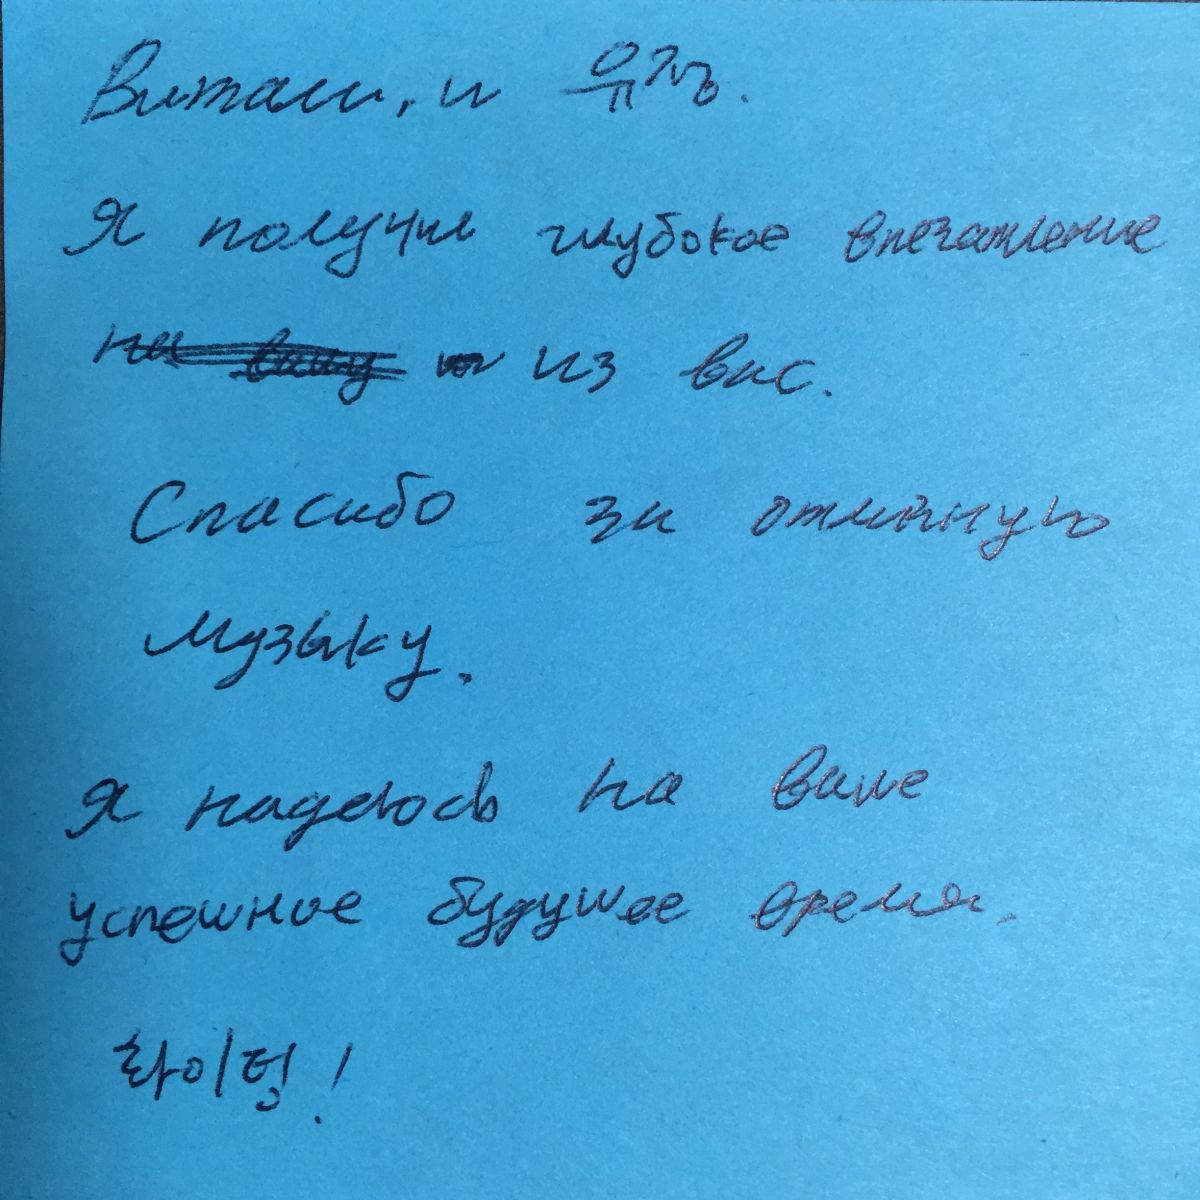 Витали, и 유정.
Я получил глубокое впечатление
из вас.
Спасибо за отличную
музыку.
Я надеюсь на ваше
успешное будущее время.
화이팅!